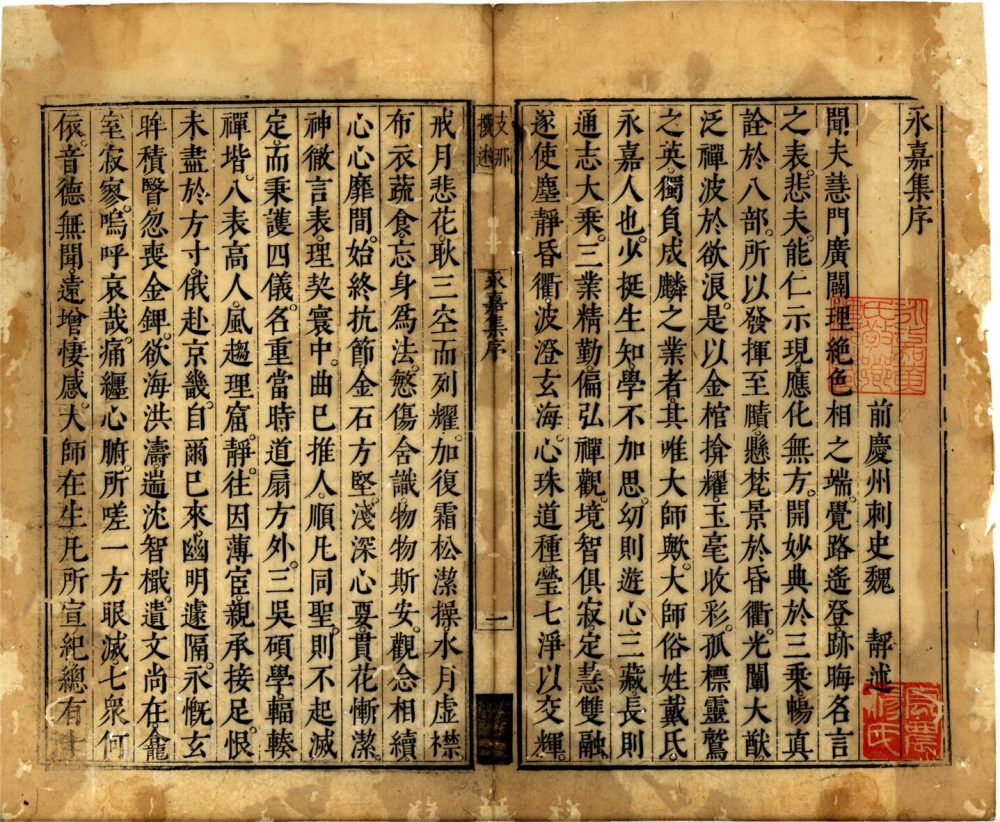 永嘉集序
前慶州刺史魏　靜述
聞夫慧門廣闢。理絕色相之端。覺路遙登。跡晦名言
之表。悲夫。能仁示現。應化無方。開妙典於三乘。暢真
詮於八部。所以發揮至賾。懸梵景於昏衢。光闡大猷。
泛禪波於欲浪。是以金棺揜耀。玉毫收彩。孤標靈鷲
之英。獨負成麟之業者。其唯大師歟。大師俗姓戴氏
永嘉人也。少挺生知。學不加思。幼則遊心三藏。長則
通志大乘。三業精勤。偏弘禪觀。境智俱寂。定慧雙融。
遂使塵靜昏衢。波澄玄海。心珠道種。瑩七淨以交輝。
支那
撰述
永嘉集序
一
戒月悲花。耿三空而列耀。加復霜松潔操。水月虛襟
布衣蔬食。忘身為法。愍傷含識。物物斯安。觀念相續。
心心靡間。始終抗節。金石方堅。淺深心要。貫花慚潔。
神徹言表。理契寰中。曲己推人。順凡同聖。則不起滅
定。而秉護四儀。名重當時。道扇方外。三吳碩學。輻輳
禪堦。八表高人。風趨理窟。靜往因薄宦。親承接足。恨
未盡於方寸。俄赴京畿。自爾已來。幽明遽隔。永慨玄
眸積瞖。忽喪金錍。欲海洪濤。遄沈智檝。遺文尚在。龕
室寂寥。嗚呼哀哉。痛纏心腑。所嗟一方眼滅。七衆何
依。音德無聞。遠增悽感。大師在生。凡所宣紀。總有十